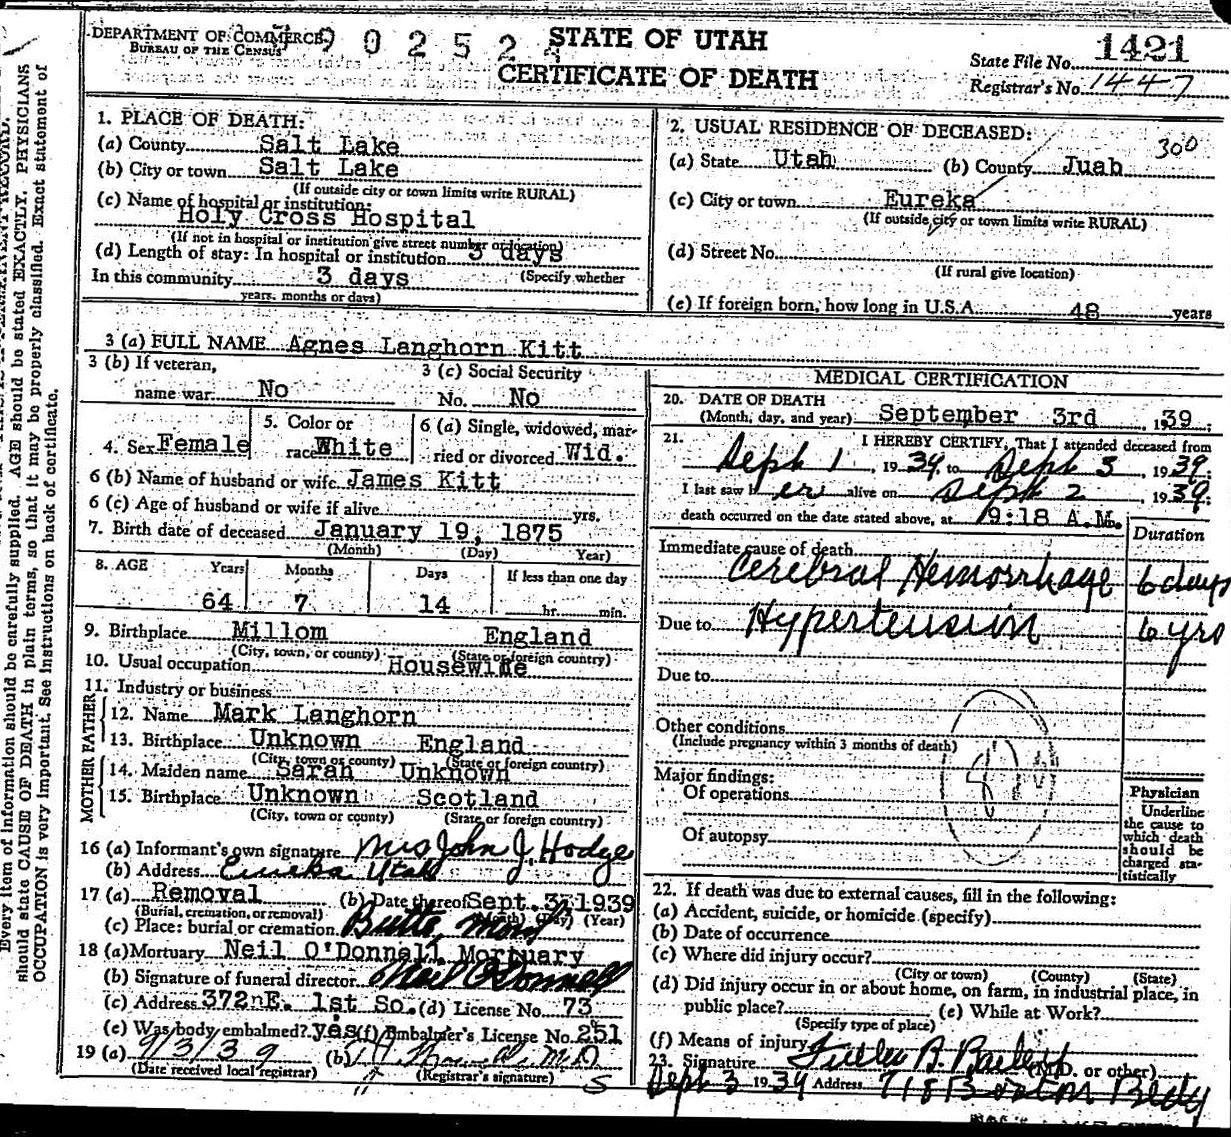 DEPARTMENT OF COMMERCE
BUREAU OF THE CENSUS
9 0 2 5 2
STATE OF UTAH
CERTIFICATE OF DEATH
State File No. 1421
Registrar's No. 1447
Every item of information should be carefully supplied. AGE should be stated EXACTLY. PHYSICIANS
should state CAUSE OF DEATH in plain terms, so that it may be properly classified. Exact statement of
OCCUPATION is very important. See instructions on back of certificate.
1. PLACE OF DEATH:
(a) County Salt Lake
(b) City or town Salt Lake
(If outside city or town limits write RURAL)
(c) Name of hospital or institution:
Holy Cross Hospital
(If not in hospital or institution give street number or location)
(d) Length of stay: In hospital or institution 3 days
In this community 3 days (Specify whether
years, months or days)
2. USUAL RESIDENCE OF DECEASED:
300
(a) State Utah (b) County Juab
(c) City or town Eureka
(If outside city or town limits write RURAL)
(d) Street No.
(If rural give location)
(e) If foreign born, how long in U.S.A. 48 years
3 (a) FULL NAME Agnes Langhorn Kitt
3 (b) If veteran, name war No
3 (c) Social Security No. No
4. Sex Female
5. Color or race White
6 (a) Single, widowed, married or divorced Wid.
6 (b) Name of husband or wife James Kitt
6 (c) Age of husband or wife if alive yrs.
7. Birth date of deceased January 19, 1875
(Month) (Day) Year)
8. AGE Years Months Days If less than one day
64 7 14 hr. min.
9. Birthplace Millom England
(City, town, or county) (State or foreign country)
10. Usual occupation Housewife
11. Industry or business
FATHER
12. Name Mark Langhorn
13. Birthplace Unknown England
(City, town or county) (State or foreign country)
MOTHER
14. Maiden name Sarah Unknown
15. Birthplace Unknown Scotland
(City, town, or county) (State or foreign country)
16 (a) Informant's own signature Mrs John J. Hodge
(b) Address Eureka Utah
17 (a) Removal (b) Date thereof Sept. 3, 1939
(Burial, cremation, or removal) (Month) (Day) (Year)
(c) Place: burial or cremation Butte, Mont
18 (a) Mortuary Neil O'Donnell Mortuary
(b) Signature of funeral director Neil O'Donnell
(c) Address 372 E. 1st So. (d) License No. 73
(e) Was body embalmed? yes (f) Embalmer's License No. 251
19 (a) 9/3/39 (b) M.D.
(Date received local registrar) (Registrar's signature)
S
MEDICAL CERTIFICATION
20. DATE OF DEATH
(Month, day, and year) September 3rd, 1939;
21. I HEREBY CERTIFY, That I attended deceased from
Sept 1, 1939, to Sept 3, 1939;
I last saw her alive on Sept 2, 1939;
death occurred on the date stated above, at 9:18 A.M.
Duration
Immediate cause of death
Cerebral Hemorrhage 6 days
Due to Hypertension 6 yrs
Due to
Other conditions
(Include pregnancy within 3 months of death)
Major findings:
Of operations
Of autopsy
Physician
Underline
the cause to
which death
should be
charged sta-
tistically
22. If death was due to external causes, fill in the following:
(a) Accident, suicide, or homicide (specify)
(b) Date of occurrence
(c) Where did injury occur?
(City or town) (County) (State)
(d) Did injury occur in or about home, on farm, in industrial place, in
public place? (e) While at Work?
(Specify type of place)
(f) Means of injury
23. Signature Fuller B. Bailey (M.D. or other)
Sept 3 1939 Address 718 Boston Bldg